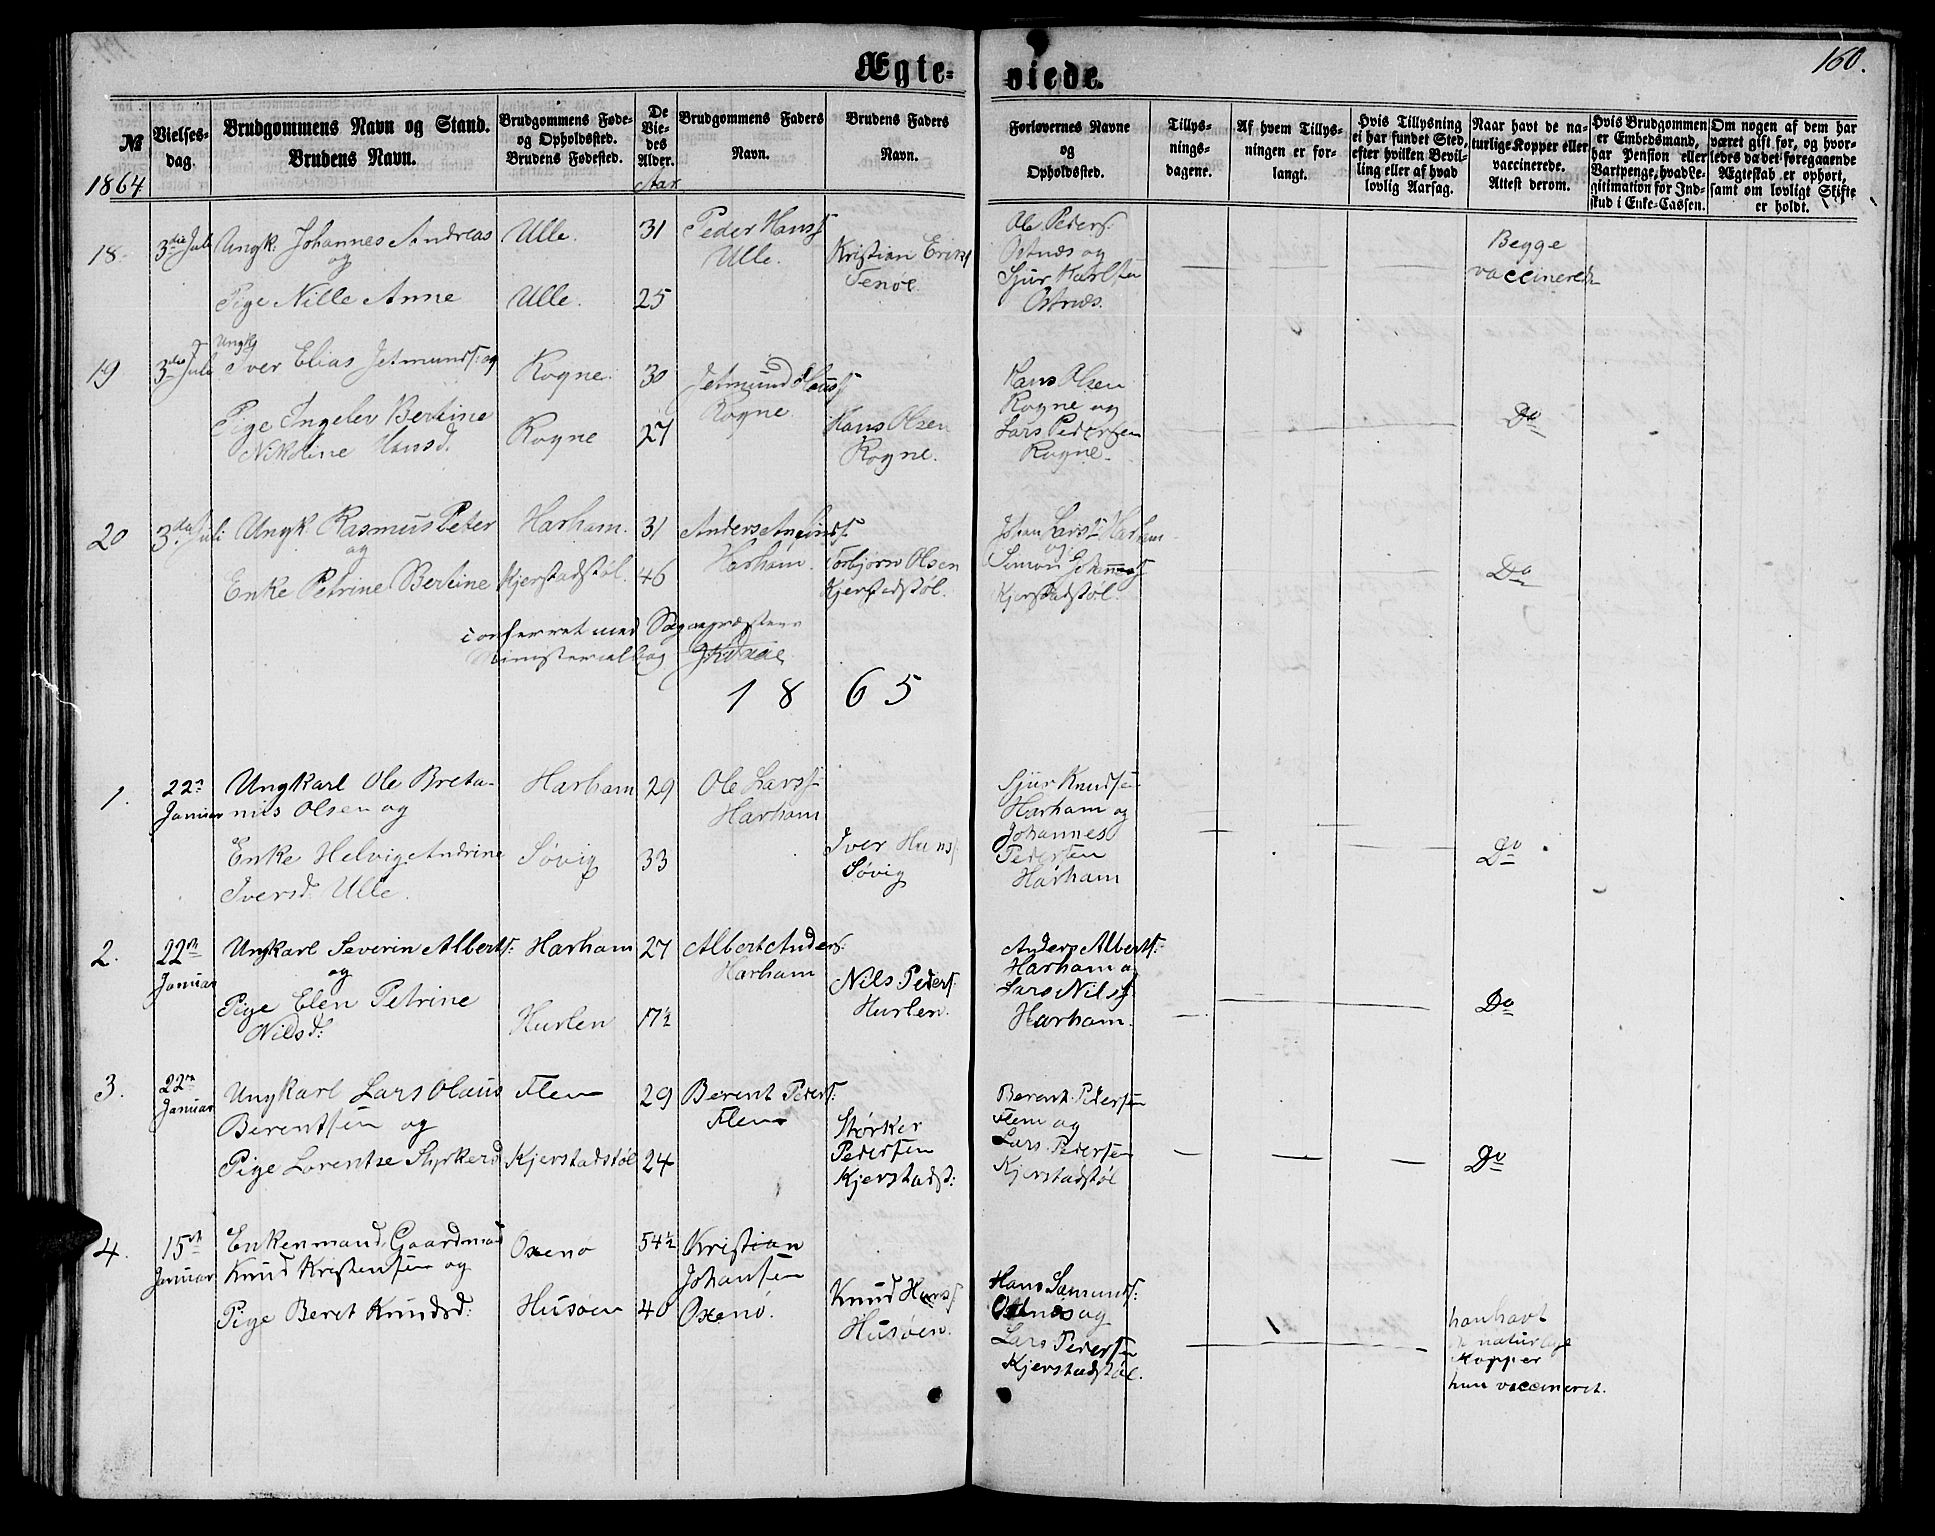 160.
Ægte-
viede.
№
1864
Vielses-
dag.
Brudgommens Navn og Stand.
Brudens Navn.
Brudgommens Føde-
og Opholdssted.
Brudens Fødested.
De
Vie-
des
Alder.
Aar
Brudgommens Faders
Navn.
Brudens Faders
Navn.
Forlovernes Navne
og
Opholdssted.
Tillys-
nings-
dagene.
Af hvem Tillys-
ningen er for-
langt.
Hvis Tillysning
ei har fundet Sted,
efter hvilken Bevil-
ling eller af hvad
lovlig Aarsag.
Naar havt de na-
turlige Kopper eller
vaccinerede.
Attest derom.
Hvis Brudgommen
er Embedsmand,
har Pension eller
Vartpenge, hvad Le-
gitimation for Ind-
skud i Enke-Cassen.
Om nogen af dem har
været gift før, og hvor-
ledes da det foregaaende
Ægteskab er ophørt,
samt om lovligt Skifte
er holdt.
18
3die Juli
Ungk. Johannes Andreas
og
Pige Nille Anne
Ulle.
Ulle.
31
25
Peder Hanss
Ulle.
Kristian Eriks
Fenøe
Ole Peders:
Østnæs og
Sjur Karlsen
Østnæs.
Begge
vaccinerede
19
3die Juli
Ungk
Iver Elias Jetmunds: og
Pige Ingelev Bertine
Nikoline Hansd.
Rogne
Rogne
30
27
Jetmund
Rogne
Hans Olsen
Rogne.
Hans Olsen
Rogne og
Lars Pedersen
Rogne.
Do
20
3die Juli
Ungk Rasmus Peter
og
Enke Petrine Bertine
Harham.
Kjerstadstøl.
31
46
Harham.
Torbjørn Olsen
Kjerstadstøl.
Johan Larsen Harham
og
Simon
Kjerstadstøl.
Do
conferret med Sognepræstens
Ministerialbog
1865
1.
22n
Januar
Ungkarl Ole Breta-
nius Olsen og
Enke Helvig Andrine
Iversd. Ulle.
Harham
Søvig
29
33
Ole Larss
Harham
Iver Hans:
Søvig
Sjur Knudsen
Harham og
Johannes
Pedersen
Harham
Do
2.
22n
Januar
Ungkarl Severin Alberts:
og
Pige Elen Petrine
Nilsd:
Harham
Hurlen
27
17½
Albert Anders:
Harham
Nils Peders:
Hurlen.
Anders Alberts:
Harham og
Lars Nilss
Harham.
Do
3.
22n
Januar
Ungkarl Lars Olaus
Berentsen og
Pige Lorentse Styrkersd
Flem
Kjerstadstøl
29
24
Berent Peders:
Flem
Størker
Pedersen
Kjerstadst:
Berent Pedersen
Flem og
Lars Pedersen
Kjerstadstøl
Do
4.
15n
Januar
Enkemand Gaardmand
Knud Kristensen og
Pige Beret Knudsd:
Oxenø
Husøen
54½
40
Kristian
Johansen
Oxenø.
Knud Hanss
Husøen.
Hans Samunds:
Østnes og
Lars Pedersen
Kjerstadstøl.
han havt
de naturlige
Kopper
hun vaccineret.